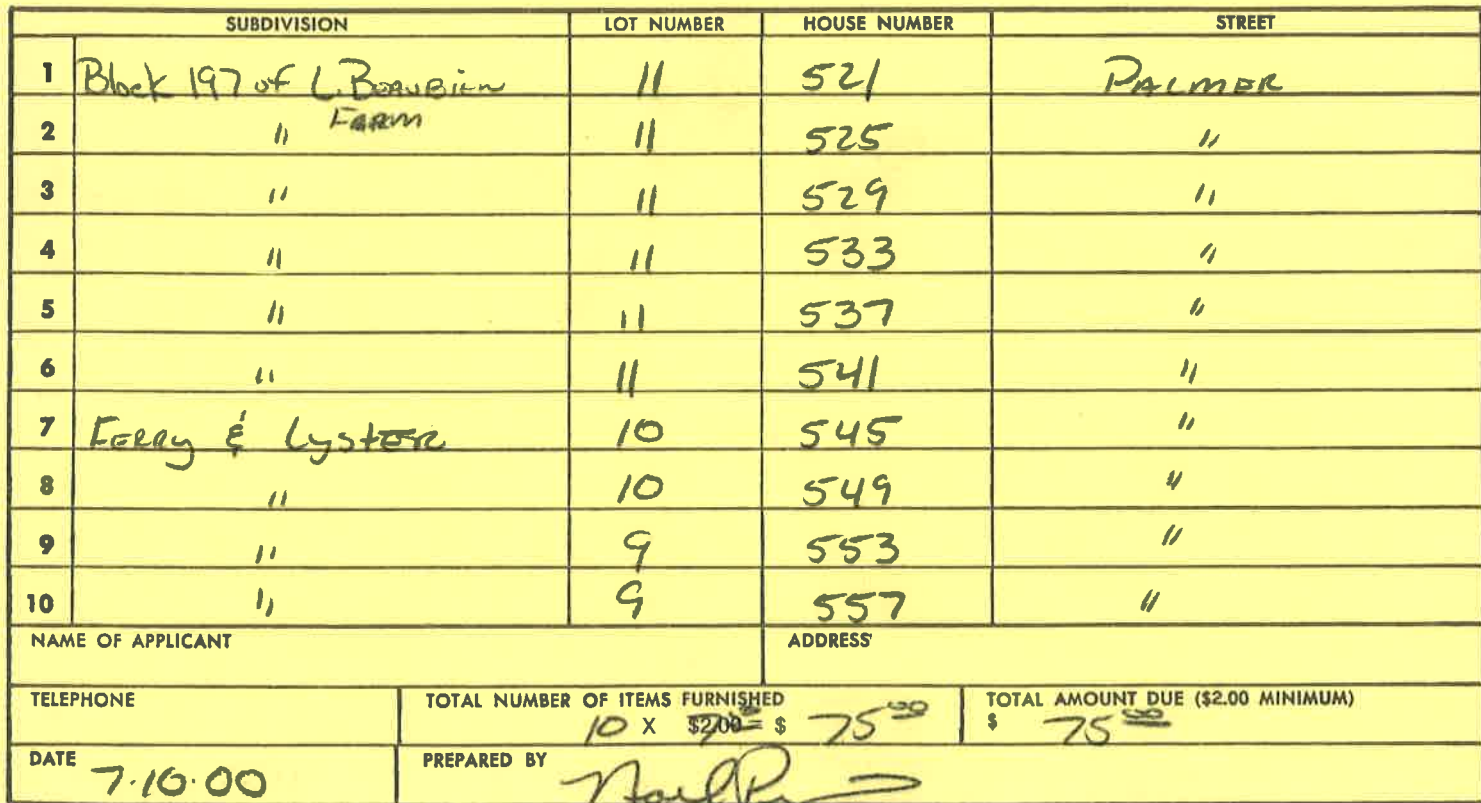 SUBDIVISION LOT NUMBER HOUSE NUMBER STREET
1 Block 197 of L. Beaubien Farm 11 521 Palmer
2 " 11 525 "
3 " 11 529 "
4 " 11 533 "
5 " 11 537 "
6 " 11 541 "
7 Ferry & Lyster 10 545 "
8 " 10 549 "
9 " 9 553 "
10 " 9 557 "
NAME OF APPLICANT ADDRESS
TELEPHONE TOTAL NUMBER OF ITEMS FURNISHED TOTAL AMOUNT DUE ($2.00 MINIMUM)
10 X $2.00 = $ 75.00 $ 75.00
DATE 7.10.00 PREPARED BY